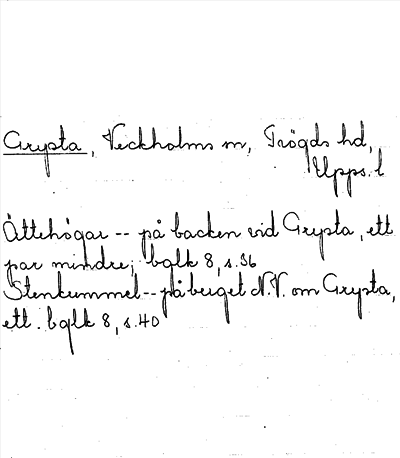 Grypta, Veckholms sn, Trögds hd,
Upps. l
Ättehögar -- på backen vid Grypta, ett
par mindre; bglk 8, s.36
Stenkummel -- på berget N.V. om Grypta,
ett. bglk 8, s.40